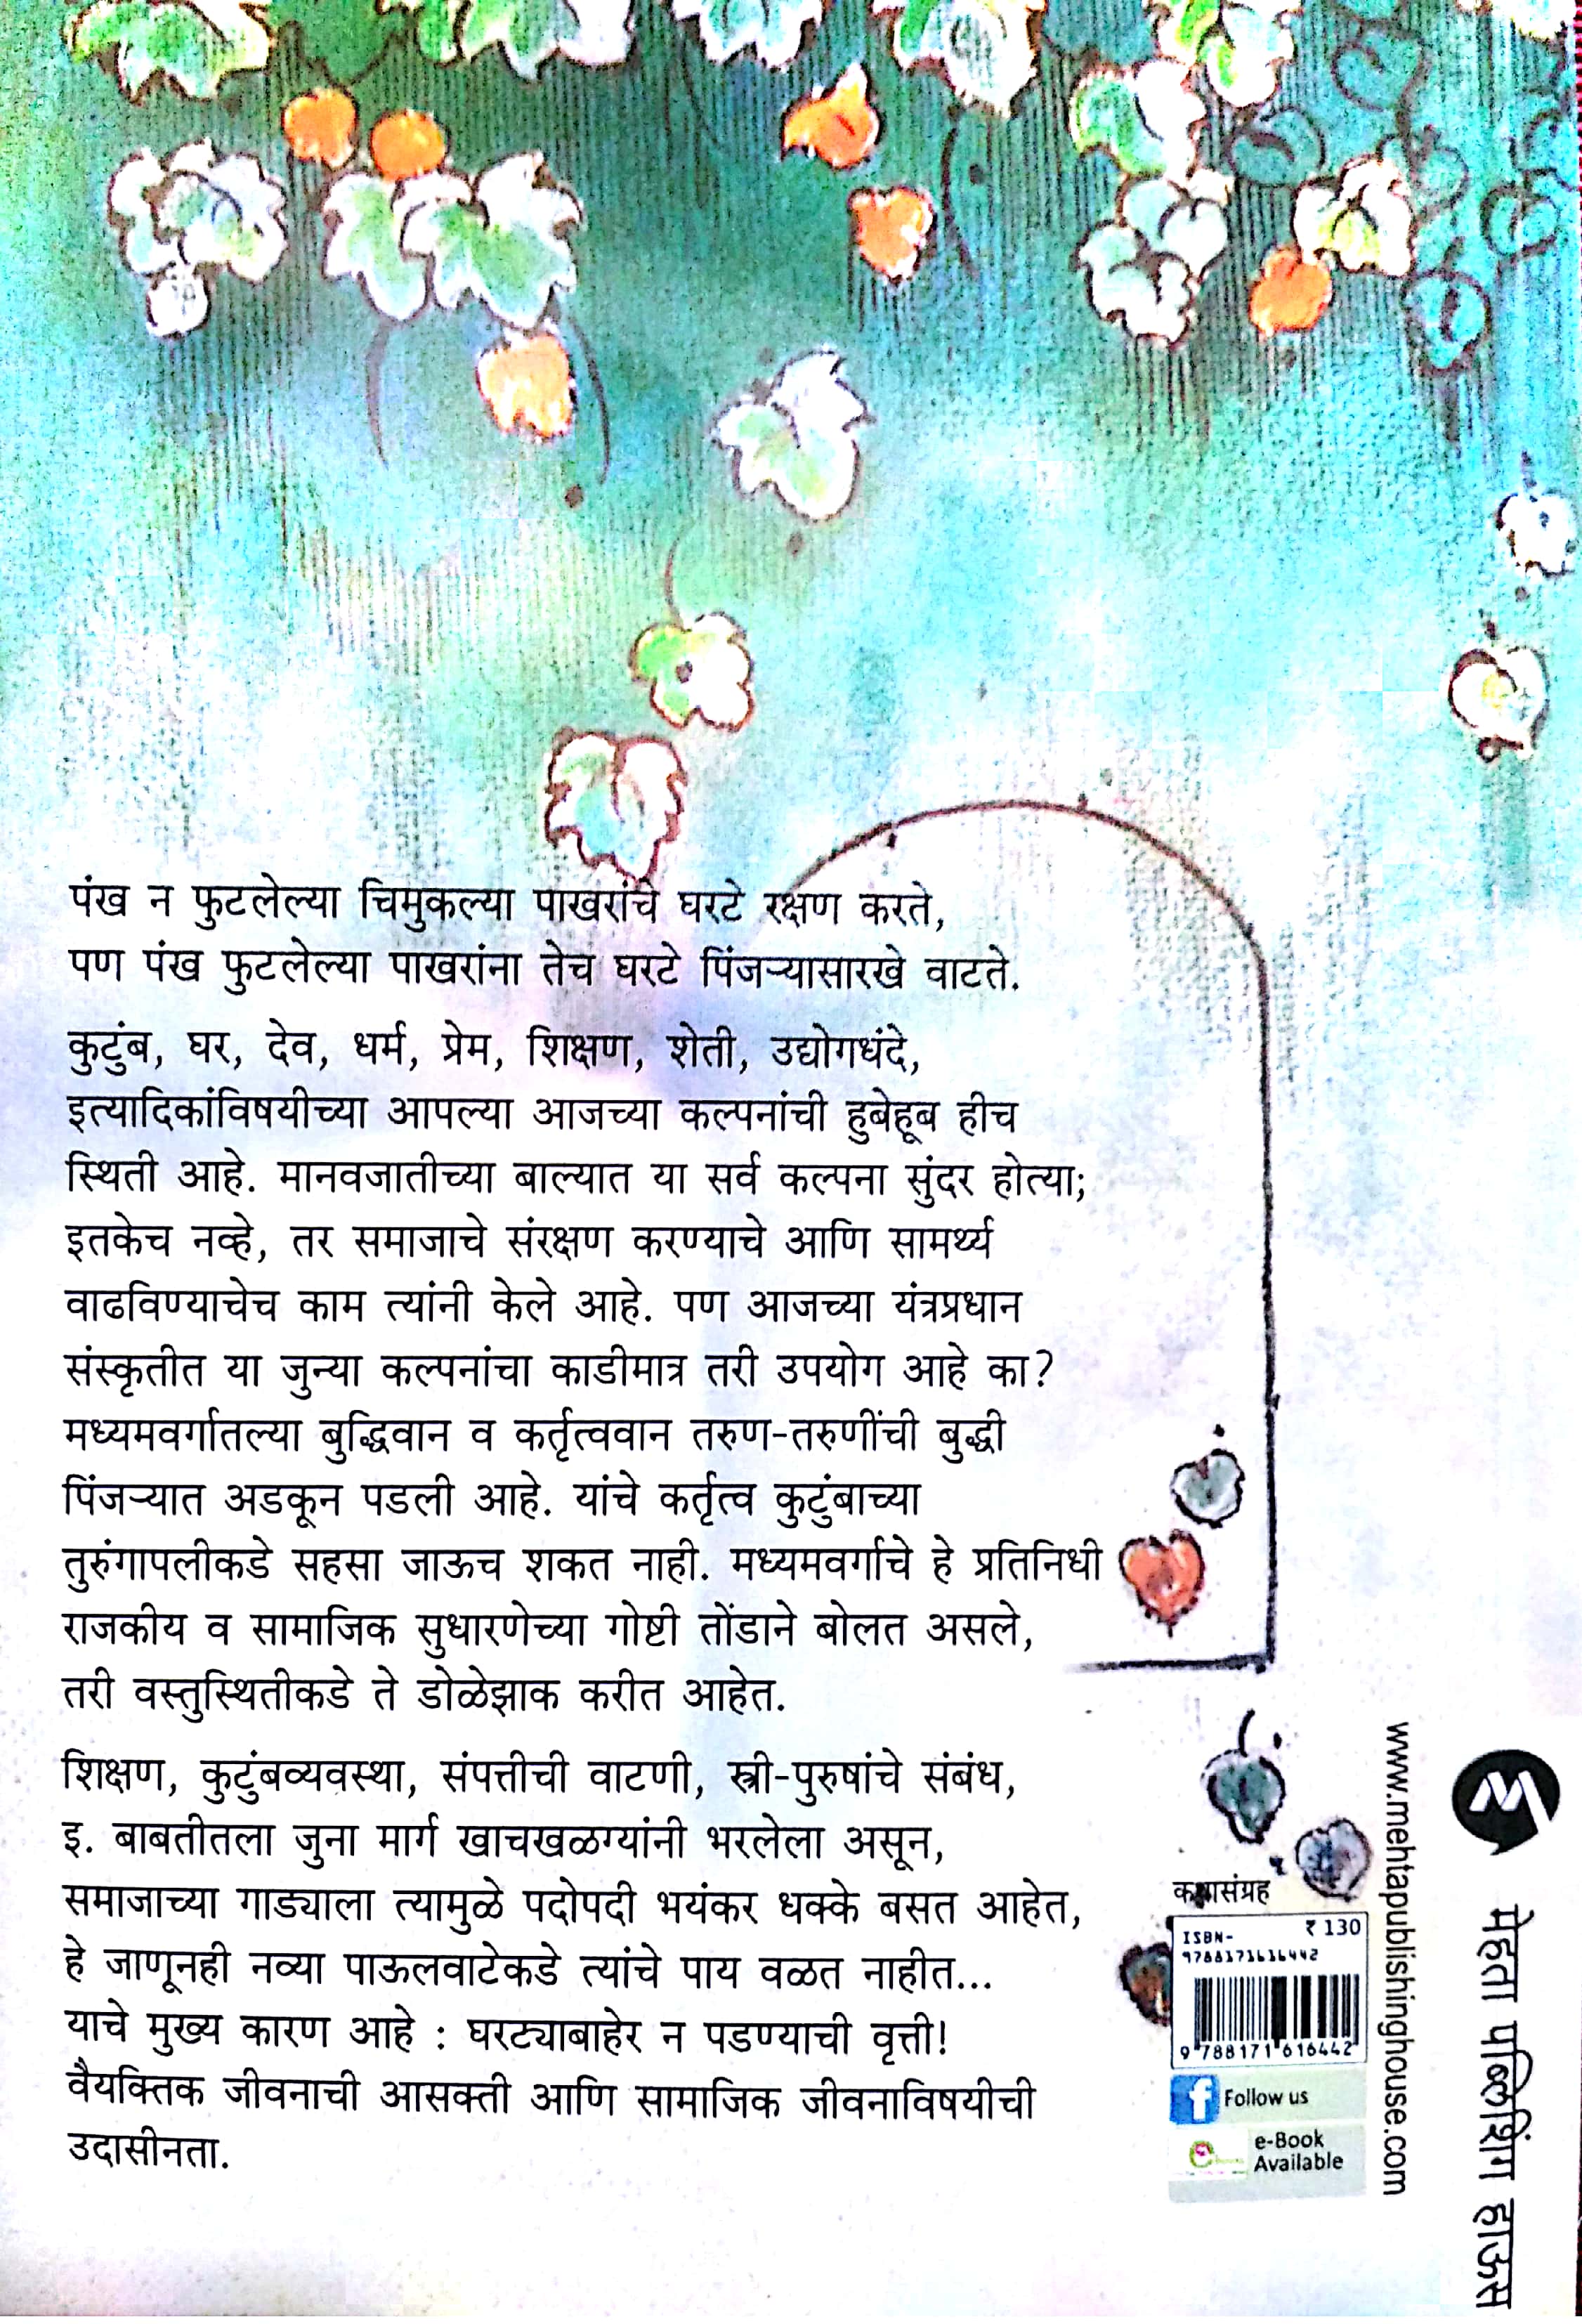 पंख न फुटलेल्या चिमुकल्या पाखरांचे घरटे रक्षण करते,
पण पंख फुटलेल्या पाखरांना तेच घरटे पिंजऱ्यासारखे वाटते.
कुटुंब, घर, देव, धर्म, प्रेम, शिक्षण, शेती, उद्योगधंदे,
इत्यादिकांविषयीच्या आपल्या आजच्या कल्पनांची हुबेहूब हीच
स्थिती आहे. मानवजातीच्या बाल्यात या सर्व कल्पना सुंदर होत्या;
इतकेच नव्हे, तर समाजाचे संरक्षण करण्याचे आणि सामर्थ्य
वाढविण्याचेच काम त्यांनी केले आहे. पण आजच्या यंत्रप्रधान
संस्कृतीत या जुन्या कल्पनांचा काडीमात्र तरी उपयोग आहे का?
मध्यमवर्गातल्या बुद्धिवान व कर्तृत्ववान तरुण-तरुणींची बुद्धी
पिंजऱ्यात अडकून पडली आहे. यांचे कर्तृत्व कुटुंबाच्या
तुरुंगापलीकडे सहसा जाऊच शकत नाही. मध्यमवर्गाचे हे प्रतिनिधी
राजकीय व सामाजिक सुधारणेच्या गोष्टी तोंडाने बोलत असले,
तरी वस्तुस्थितीकडे ते डोळेझाक करीत आहेत.
शिक्षण, कुटुंबव्यवस्था, संपत्तीची वाटणी, स्त्री-पुरुषांचे संबंध,
इ. बाबतीतला जुना मार्ग खाचखळग्यांनी भरलेला असून,
समाजाच्या गाड्याला त्यामुळे पदोपदी भयंकर धक्के बसत आहेत,
हे जाणूनही नव्या पाऊलवाटेकडे त्यांचे पाय वळत नाहीत...
याचे मुख्य कारण आहे : घरट्याबाहेर न पडण्याची वृत्ती!
वैयक्तिक जीवनाची आसक्ती आणि सामाजिक जीवनाविषयीची
उदासीनता.
कथासंग्रह
ISBN- ₹ 130
9788171616442
9 788171 616442
Follow us
e-Book
Available
www.mehtapublishinghouse.com
मेहता पब्लिशिंग हाऊस